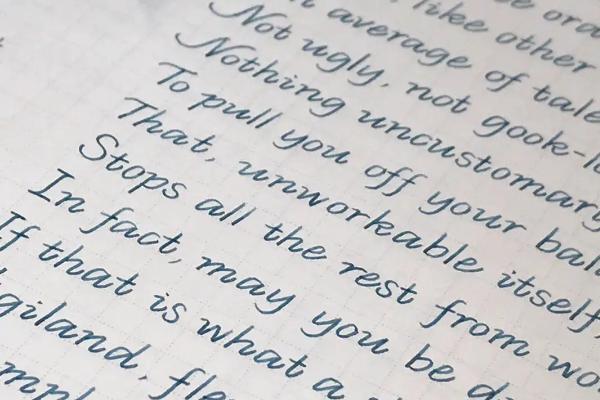 like other
average of tale
Not ugly, not gook-l
Nothing uncustomary
To pull you off your bal
That, unworkable itself,
Stops all the rest from wo
In fact, may you be d
If that is what a
giland, fle